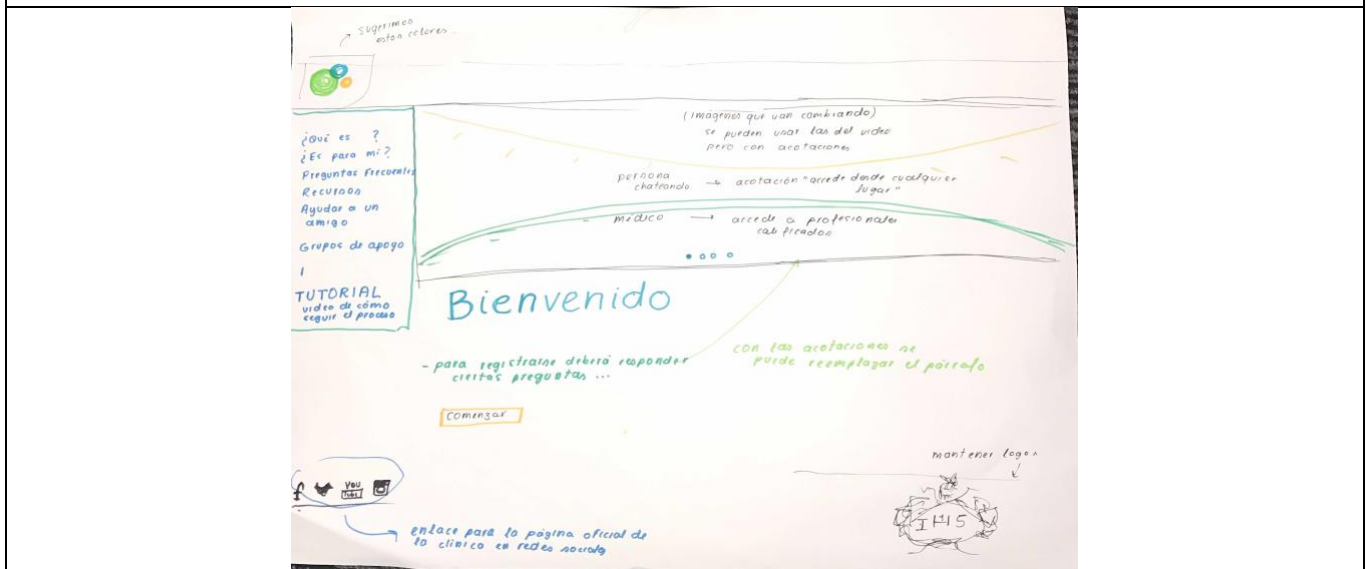 sugerimos
estos colores
¿Qué es ?
¿Es para mi?
Preguntas Frecuentes
Recursos
Ayudar a un
amigo
Grupos de apoyo
TUTORIAL
video de cómo
seguir el proceso
(Imágenes que van cambiando)
se pueden usar las del video
pero con acotaciones
persona
chateando → acotación "accede desde cualquier
lugar"
médico → accede a profesionales
calificados
Bienvenido
- para registrarse deberá responder
ciertas preguntas ...
con las acotaciones se
puede reemplazar el párrafo
comenzar
mantener logos
f You
Tube
IHS
enlace para la página oficial de
la clínica en redes sociales